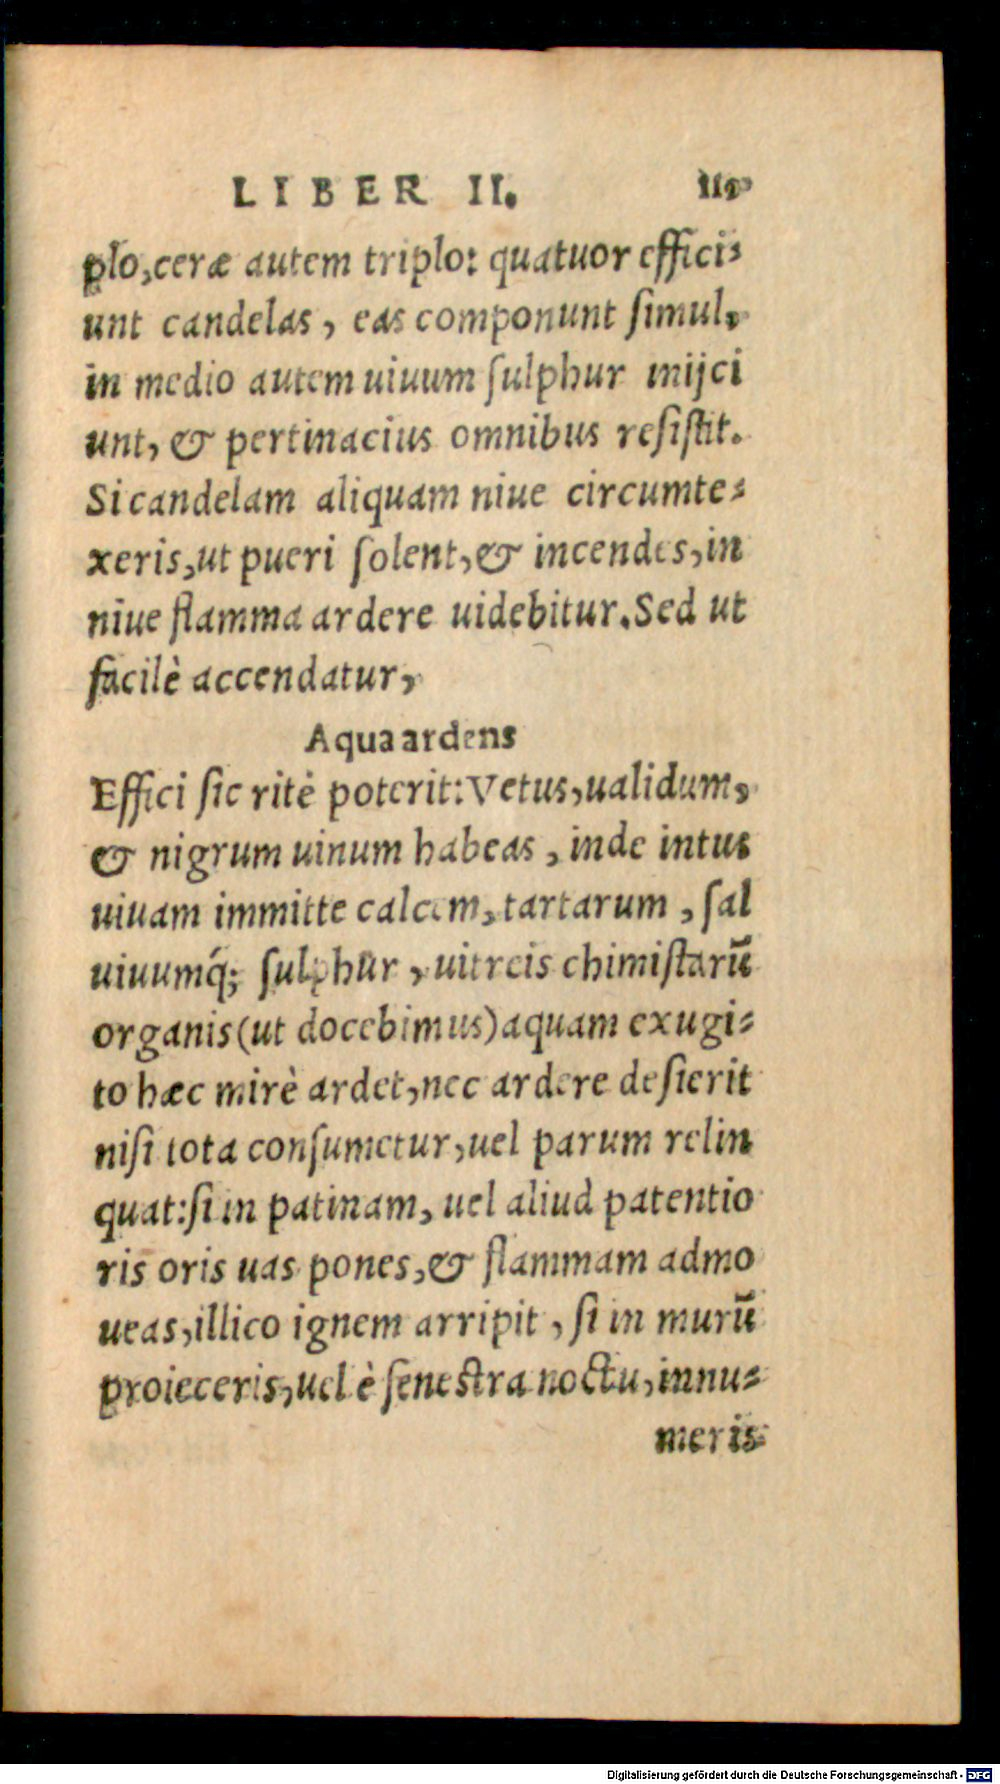 LIBER II.
plo, ceræ autem triplo: quatuor effici⸗
unt candelas, eas componunt ſimul,
in medio autem uiuum ſulphur inijci
unt, & pertinacius omnibus reſiſtit.
Si candelam aliquam niue circumte⸗
xeris, ut pueri ſolent, & incendes, in
niue flamma ardere uidebitur. Sed ut
facilè accendatur,
Aqua ardens
Effici ſic ritè poterit: Vetus, ualidum,
& nigrum uinum habeas, inde intus
uiuam immitte calcem, tartarum, ſal
uiuumq́; ſulphur, uitreis chimiſtarū
organis (ut docebimus) aquam exugi⸗
to hæc mirè ardet, nec ardere deſierit
niſi tota conſumetur, uel parum relin
quat: ſi in patinam, uel aliud patentio
ris oris uas pones, & flammam admo
ueas, illico ignem arripit, ſi in murū
proieceris, uel è feneſtra noctu, innu⸗
meris
Digitalisierung gefördert durch die Deutsche Forschungsgemeinschaft - DFG